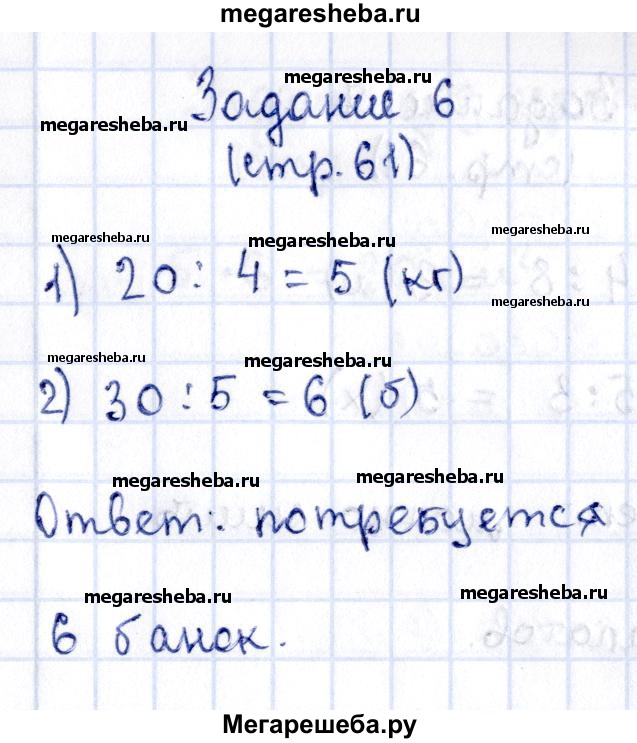 megaresheba.ru
megaresheba.ru
Задание 6
megaresheba.ru
(стр. 61)
megaresheba.ru megaresheba.ru megaresheba.ru
1) 20 : 4 = 5 (кг)
megaresheba.ru
megaresheba.ru megaresheba.ru
2) 30 : 5 = 6 (б)
megaresheba.ru megaresheba.ru
Ответ: потребуется
megaresheba.ru megaresheba.ru
6 банок.
Мегарешеба.ру